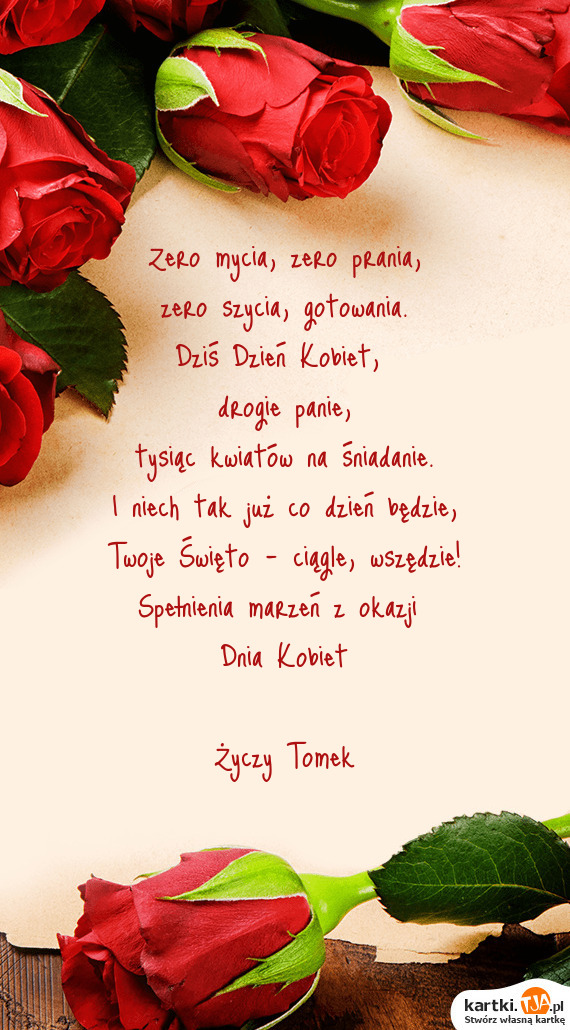 Zero mycia, zero prania,
zero szycia, gotowania.
Dziś Dzień Kobiet,
drogie panie,
tysiąc kwiatów na śniadanie.
I niech tak już co dzień będzie,
Twoje Święto - ciągle, wszędzie!
Spełnienia marzeń z okazji
Dnia Kobiet
Życzy Tomek
kartki.TJA.pl
Stwórz własną kartkę